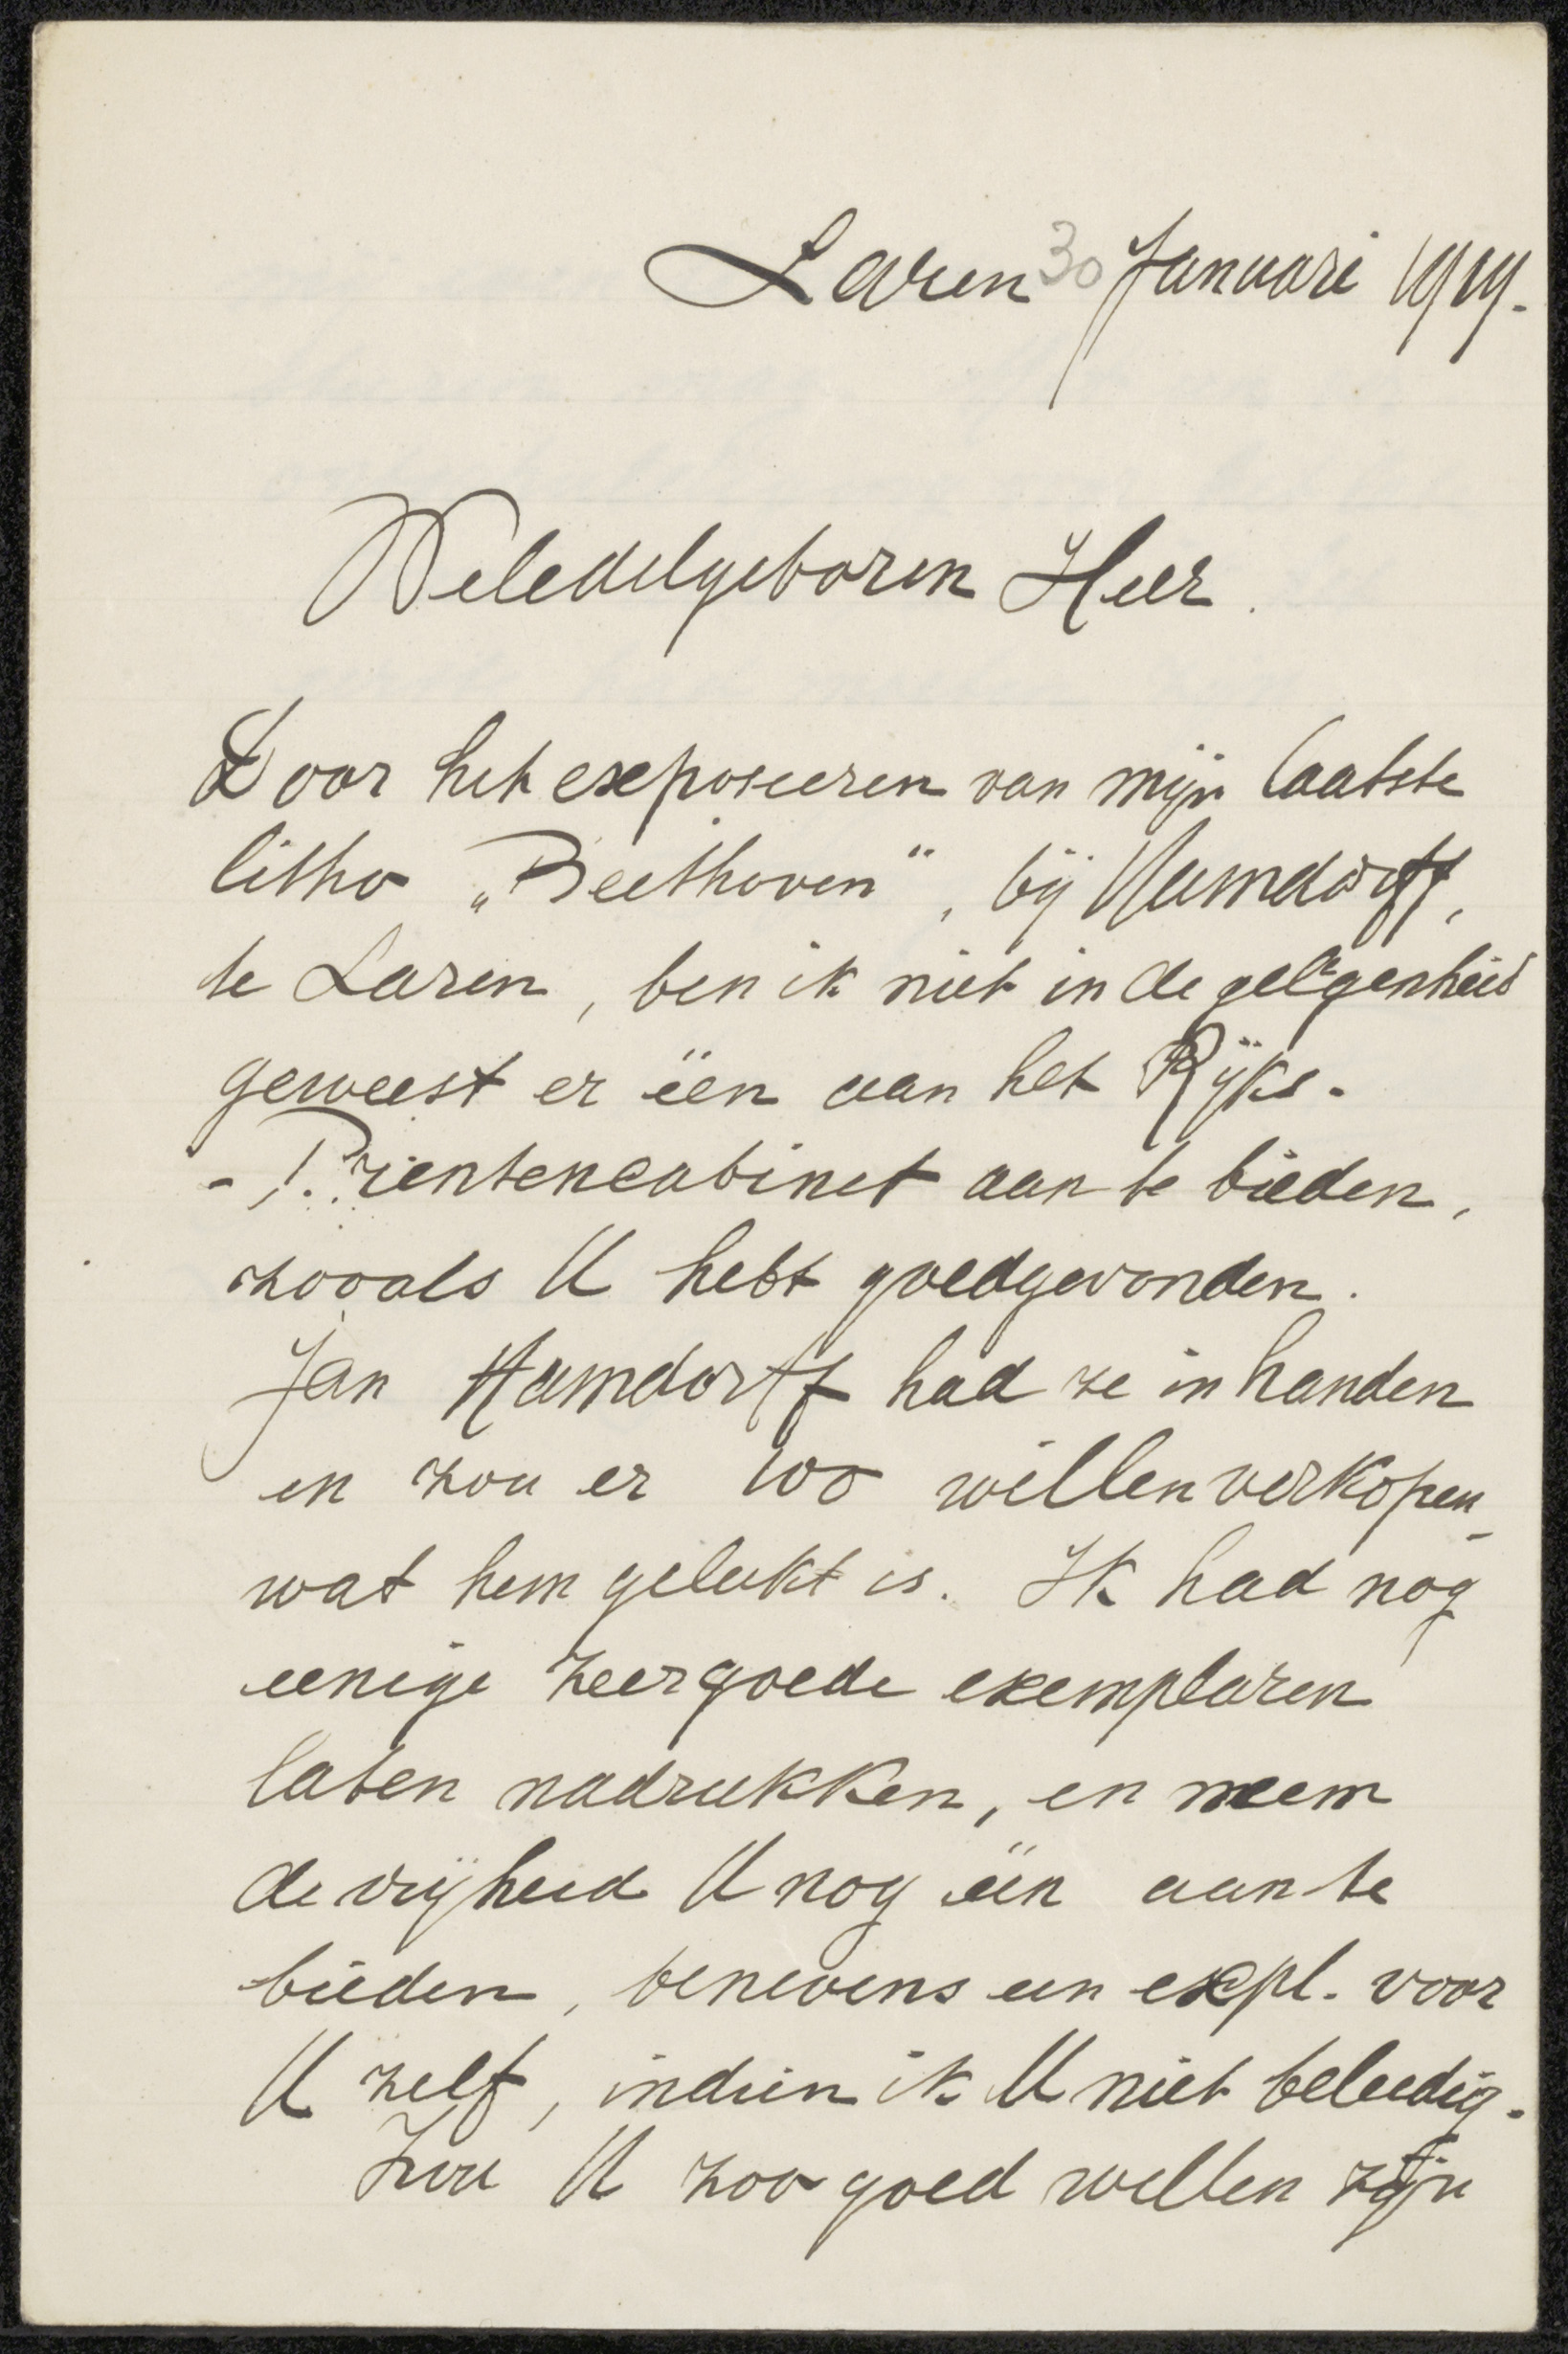 Laren 30 Januari 1919.
Weledelgeboren Heer.
Door het exposeeren van mijn laatste
litho „Beethoven", bij Hamdorff,
te Laren, ben ik niet in de gelegenheid
geweest er één aan het Rijks-
- Prentencabinet aan te bieden,
zooals U hebt goedgevonden.
Jan Hamdorff had ze in handen
en zou er 100 willen verkopen
wat hem gelukt is. Ik had nog
eenige zeer goede exemplaren
laten nadrukken, en neem
de vrijheid U nog één aan te
bieden, benevens een expl. voor
U zelf, indien ik U niet beleedig.
Zou U zoo goed willen zijn